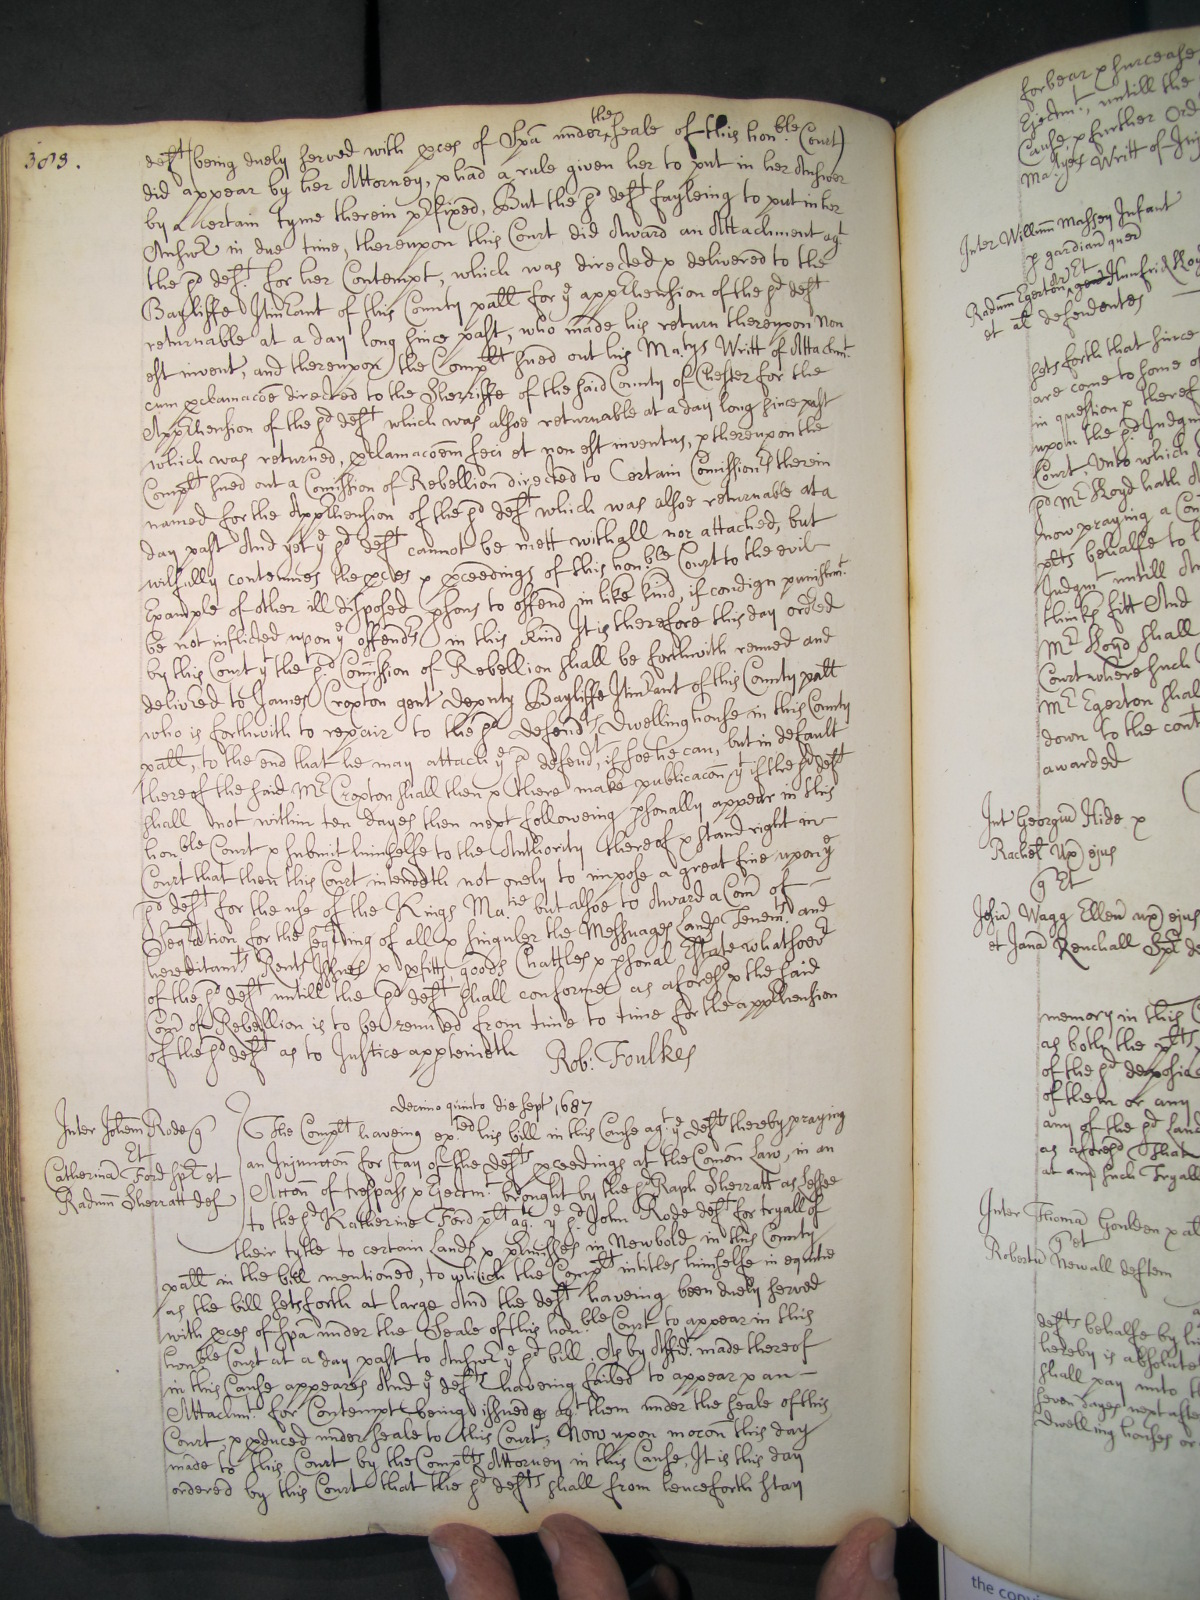 303.
def:t (being duely served with pces of Spã under the seale of this hon:ble Court)
did appear by her Attorney, & had a rule given her to put in her Answer
by a certain tyme therein p'fixed, But the s:d def:t fayleing to put in her
Answ:r in due time, thereupon this Court did Award an Attachment ag:t
the s:d def:t for her Contempt, which was directed & delivered to the
Bayliffe Itin'ant of this County pall for y:e app'hension of the s:d def:t
returnable at a day long since past, who made his return thereupon non
est invent, and thereupon the Comp:lt sued out his Ma:tys Writt of Attachm:t
cum p'clamacõe directed to the Sherriffe of the said County of Chester for the
App'hension of the s:d def:t which was alsoe returnable at a day long since past
which was returned, p'clamacõem feci et non est inventus, & thereupon the
Comp:lt sued out a Comission of Rebellion directed to Certain Comission:rs therein
named for the App'hension of the s:d def:t which was alsoe returnable at a
day past And yet y:e s:d def:t cannot be mett withall nor attached, but
wilfully contemnes the pces & p'ceedings of this hon:ble Court to the evil
Example of other ill disposed p'sons to offend in like kind, if condign punishm:t
be not inflicted upon y:e offend:rs in this kind It is therefore this day ord'ed
by this Court y:t the s:d Comission of Rebellion shall be forthwith renued and
deliv'ed to James Croxton gent deputy Bayliffe Itin'ant of this County pall
who is forthwith to repair to the s:d defend:ts Dwelling house in this County
pall, to the end that he may attach y:e s:d defend:t, if soe he can, but in default
thereof the said M:r Croxton shall then & there make publicacõn y:t if the s:d def:t
shall not within ten dayes then next followeing p'sonally appear in this
hon:ble Court & submit himselfe to the Authority thereof & stand right in
Court that then this Court intendeth not onely to impose a great fine upon y:e
s:d def:t for the use of the Kings Ma:tie but alsoe to Award a Com:n of
Seq'ation for the seq'ing of all & singuler the Messuages Lands Tenem:ts and
hereditam:ts Rents Issues & p'fitts goods Chattles & p'sonal Estate whatsoev:r
of the s:d def:t untill the s:d def:t shall conforme as afores:d & the said
Com:n of Rebellion is to be renued from time to time for the app'hension
of the s:d def:t as to Justice apperteineth Rob: Foulkes
Decimo quinto die Sept 1687
Inter Johem Rode q
Et
Catherina Ford Sp:r et
Radum Sherratt def
The Comp:lt haveing ex:ted his bill in this Cause ag:t y:e def:ts thereby praying
an Injunction for stay of the def:ts p'ceedings at the Comon Law, in an
Accõn of trespass & Ejectm:t brought by the s:d Raph Sherratt as Lessee
to the s:d Katherine Ford pl:t ag:t y:e s:d John Rode def:t for tryall of
their tytle to certain Lands & p'misses in Newbold in this County
pall in the bill mentioned, to which the Comp:lt intitles himselfe in equitie
as the bill sets forth at large And the def:ts haveing been duely served
with pces of Spã under the Seale of this hon:ble Court to appear in this
hon:ble Court at a day past to Answ:r y:e s:d bill, As by Affid:t made thereof
in this Cause appeares And y:e def:ts haveing failed to appear & an
Attachm:t for Contempt being issued ag:t them under the seale of this
Court, & p'duced under seale to this Court, Now upon mocõn this day
made to this Court by the Comp:lts Attorney in this Cause, It is this day
ordered by this Court that the s:d def:ts shall from henceforth stay
forbear & surcease
Ejectm:t, untill the
Cause & further Ord
Ma:tyes Writt of In
Inter Willum Massey Infant
p gardian quer
Et
Radum Egerton
et al defendentes
sets forth that since
are come to some
in question & thereof
upon the s:d Judgm
Court, Unto which
s:d M:r Lloyd hath
now praying a Con
plts behalfe to
Judgm:t untill
thinks fitt And
M:r Lloyd shall
Court where such
M:r Egerton shal
down to the cont
awarded
Int Georgiu Hide &
Rachel Ux ejus
q Et
Wagg Ellen ux ejus
et Jana Renchall Sp:r de
memory in this
as both the plts
of the s:d deposic
of them or any
any of the s:d Land
as afores:d That
at any such Tryall
Inter Thoma Goulden & al
q et
Robertu Newall deftem
def:ts behalfe by hi
hereby is absolute
shall pay unto
seven dayes next afte
dwelling houses or